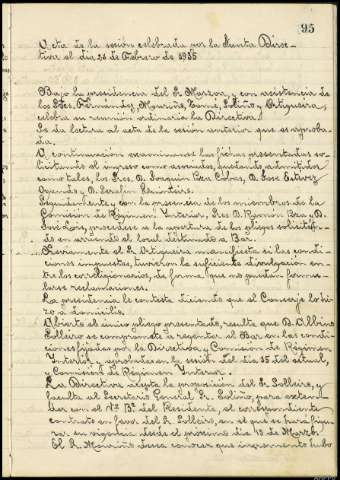 95
Acta de la sesión celebrada por la Junta Direc-
tiva el dia 21 de Febrero de 1935
Bajo la presidencia del Sr. y con asistencia de
los Sres. Fernández, Mouriño, Tomé, Soliño y Ortigueira,
celebra su reunión ordinaria la Directiva.
Se da lectura al acta de la sesión anterior que es aproba-
da.
A continuación examinanse las fichas presentadas so-
licitando el ingreso como asociados, quedando admitidos
como tales, los Sres. D. Joaquin D. Jose Estevez
y D. Serafin
Seguidamente y con la presencia de los miembros de la
Comisión de Régimen Interior, Sres. D. Ramón Rea y D.
José procedese a la apertura de los pliegos solicitan-
do en arriendo el local destinado a Bar.
Previamente el Sr. Ortigueira manifiesta si las condi-
ciones impuestas, tuvieron la suficiente divulgación en-
tre los correligionarios, de forma, que no puedan formu-
larse reclamaciones.
La presidencia le contesta diciendo que el Conserje lo hi-
zo a domicilio.
Abierto el único pliego presentado, resulta que D. Albino
Solleiro se compromete a regentar el Bar en las condi-
ciones fijadas por la Directiva y Comisión de Régimen
Interior y aprobadas en la sesión del dia 15 del actual,
y Comisión de Régimen Interior.
La Directiva acepta la proposición del Sr. Solleiro, y
faculta al Secretario General Sr. Soliño, para exten-
der con el Vº Bº del Presidente, el correspondiente
contrato en favor del Sr. Solleiro, en el que se hará figu-
rar su vigencia desde el proximo dia 1º de Marzo.
El Sr. Mouriño desea conocer que incremento hubo